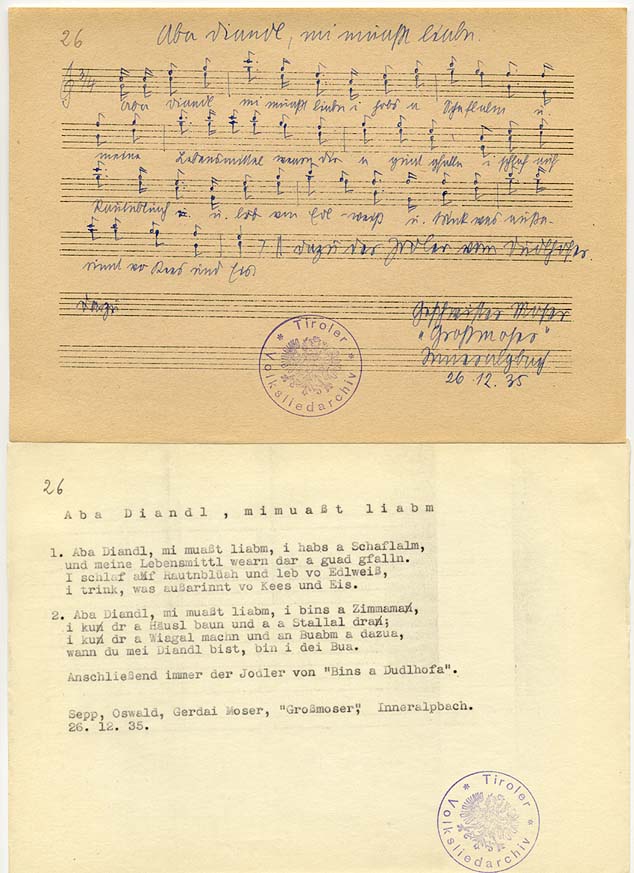 26
Aba Diandl, mi muaßt liabn.
3/4
Aba Diandl mi muaßt liabn i hobs a Schaflalm u.
meine Lebensmittel wearn dir a guat gfalln i schlaf auf
Rautnbluah u. leb von Edl-weiß u. trink was außa-
rinnt vo Kees und Eis
dazu der Jodler vom Dudlhofer.
Dazu
Geschwister Moser
"Großmoser"
Inneralpbach
26.12.35
* Tiroler *
Volksliedarchiv
26
Aba Diandl , mi muaßt liabm
1. Aba Diandl, mi muaßt liabm, i habs a Schaflalm,
und meine Lebensmittl wearn dar a guad gfalln.
I schlaf auf Rautnblüah und leb vo Edlweiß,
i trink, was außarinnt vo Kees und Eis.
2. Aba Diandl, mi muaßt liabm, i bins a Zimmaman,
i kun dr a Häusl baun und a a Stallal dran;
i kun dr a Wiagal machn und an Buabm a dazua,
wann du mei Diandl bist, bin i dei Bua.
Anschließend immer der Jodler von "Bins a Dudlhofa".
Sepp, Oswald, Gerdai Moser, "Großmoser", Inneralpbach.
26. 12. 35.
* Tiroler *
Volksliedarchiv